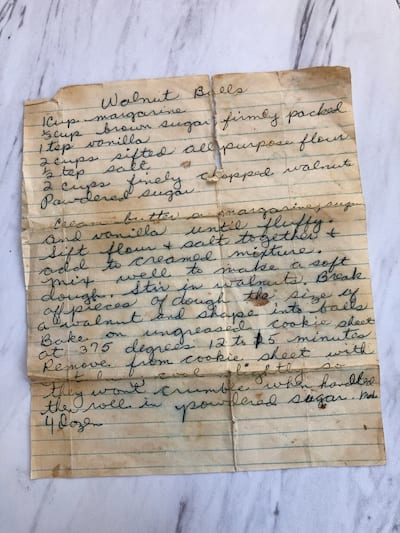 Walnut Balls
1 Cup margarine
cup brown sugar firmly packed
1 tsp vanilla
2 cups sifted all purpose flour
½ tsp salt
2 cups finely chopped walnuts
Powdered sugar.
Cream butter or margarine, sugar
and vanilla until fluffy.
Sift flour & salt together &
add to creamed mixture.
Mix well to make a soft
dough. Stir in walnuts. Break
off pieces of dough the size of
a walnut and shape into balls
Bake on ungreased cookie sheet
at 375 degrees 12 to 15 minutes
Remove from cookie sheet with
slightly so
they won't crumble when handled
the roll in powdered sugar.
4 Dozen